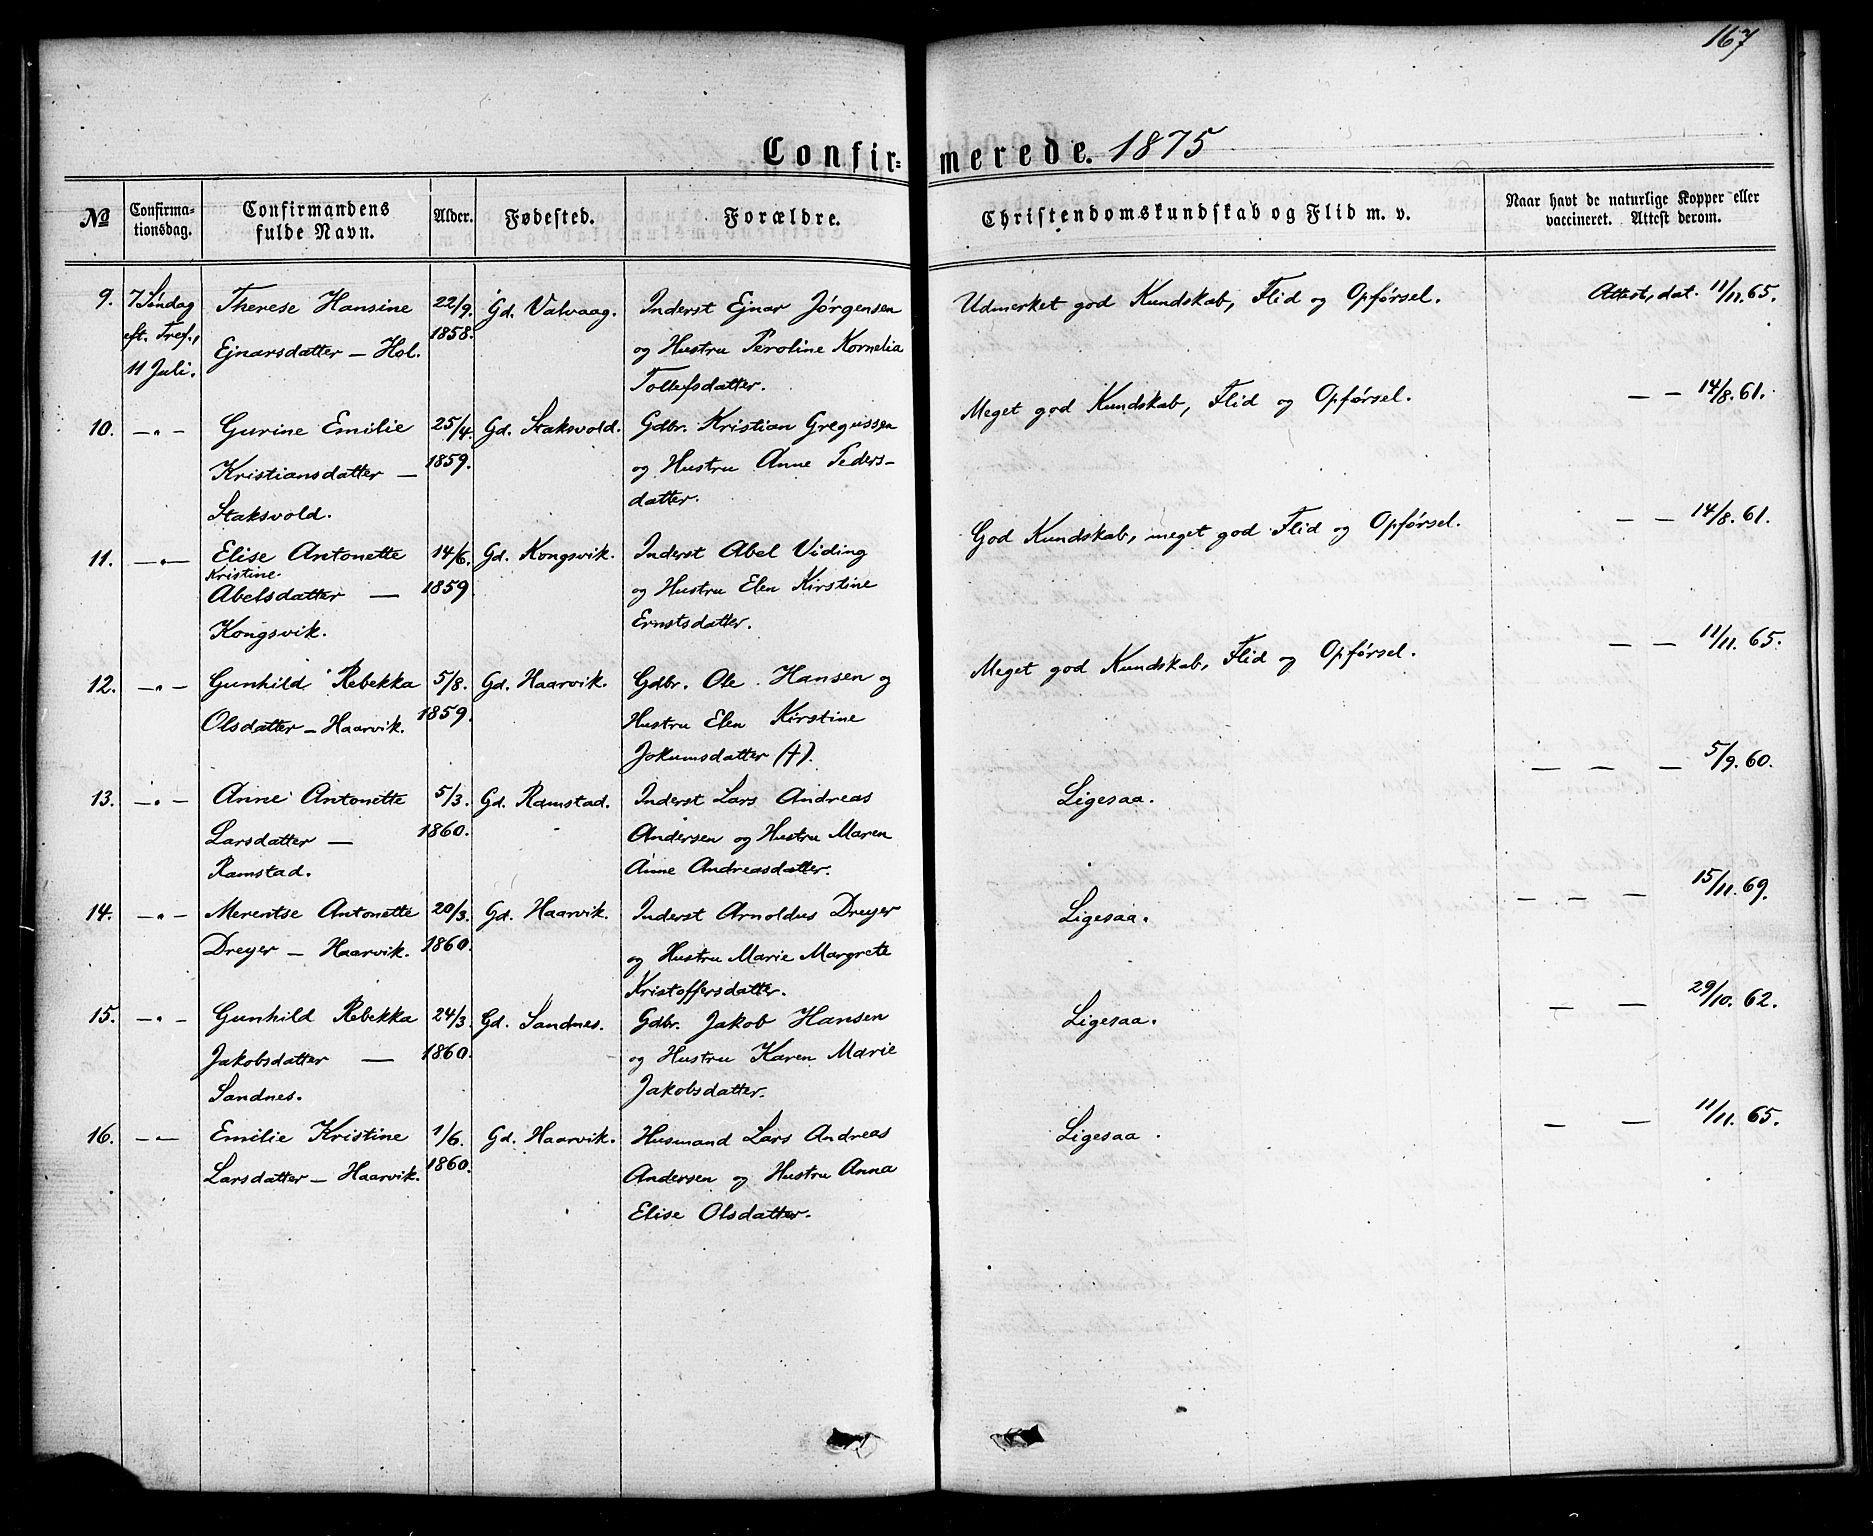 167
Confir- merede. 1875
№ Confirma-tionsdag. Confirmandens fulde Navn. Alder. Fødested. Forældre. Christendomskundskab og Flid m. v. Naar havt de naturlige Kopper eller vaccineret. Attest derom.
9. 7 Søndag Therese Hansine 22/9. Gd. Valvaag. Inderst Ejnar Jørgensen Udmerket god Kundskab, Flid og Opførsel. Attest, dat. 11/11. 65.
eft. Tref., Ejnarsdatter — Hol. 1858. og Hustru Peroline Kornelia
11 Juli. Tollefsdatter.
10. — " — Gurine Emilie 25/4. Gd. Staksvold. Gdbr. Kristian Gregussen Meget god Kundskab, Flid og Opførsel. — — 14/8. 61.
Kristiansdatter — 1859. og Hustru Anne Peders-
Staksvold. datter.
11. — " — Elise Antonette 14/6. Gd. Kongsvik. Inderst Abel Viding God Kundskab, meget god Flid og Opførsel. — — 14/8. 61.
Kristine
Abelsdatter — 1859 og Hustru Elen Kirstine
Kongsvik. Ernstsdatter.
12. — " — Gunhild Rebekka 5/8. Gd. Haarvik. Gdbr. Ole Hansen og Meget god Kundskab, Flid og Opførsel. — — 11/11. 65.
Olsdatter — Haarvik. 1859. Hustru Elen Kirstine
Jokumsdatter (†).
13. — " — Anne Antonette 5/3. Gd. Ramstad. Inderst Lars Andreas Ligesaa. — — — 5/9. 60.
Larsdatter — 1860. Andersen og Hustru Maren
Ramstad. Anne Andreasdatter.
14. — " — Merentse Antonette 20/3. Gd. Haarvik. Inderst Arnoldus Dreyer Ligesaa. — — — 15/11. 69.
Dreyer — Haarvik. 1860. og Hustru Marie Margrete
Kristoffersdatter.
15. — " — Gunhild Rebekka 24/3. Gd. Sandnes. Gdbr. Jakob Hansen Ligesaa. — — 29/10. 62.
Jakobsdatter — 1860. og Hustru Karen Marie
Sandnes. Jakobsdatter.
16. — " — Emilie Kristine 1/6. Gd. Haarvik. Husmand Lars Andreas Ligesaa. — — 11/11. 65.
Larsdatter — Haarvik. 1860. Andersen og Hustru Anna
Elise Olsdatter.